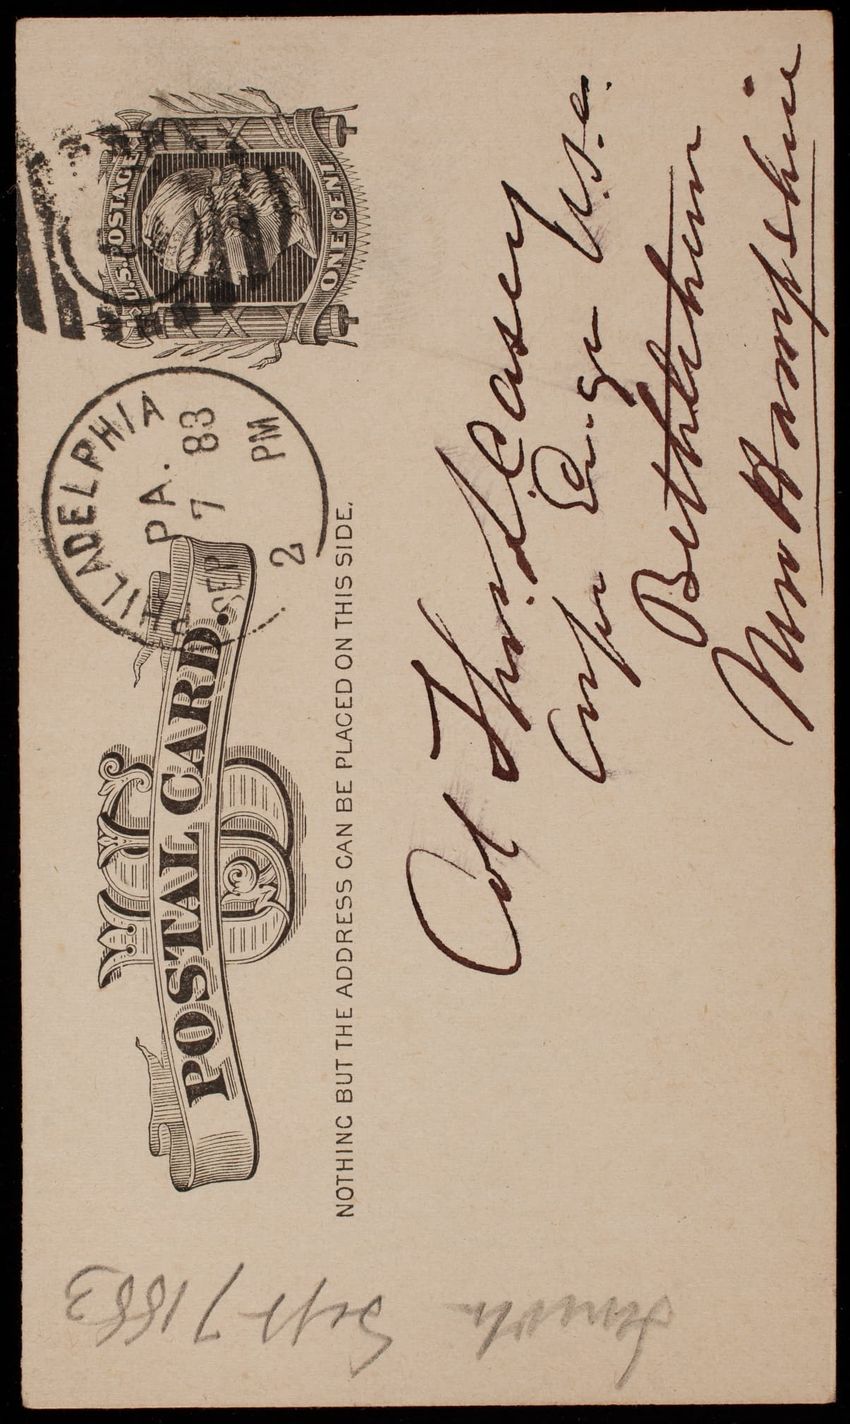 U.S. POSTAGE
ONE CENT
PHILADELPHIA
PA.
SEP 7 83
2 PM
US
POSTAL CARD.
NOTHING BUT THE ADDRESS CAN BE PLACED ON THIS SIDE.
Col Thos. L. Casey
Corps Engrs U.S.A.
Bethlehem
New Hampshire
Sept 7 1883